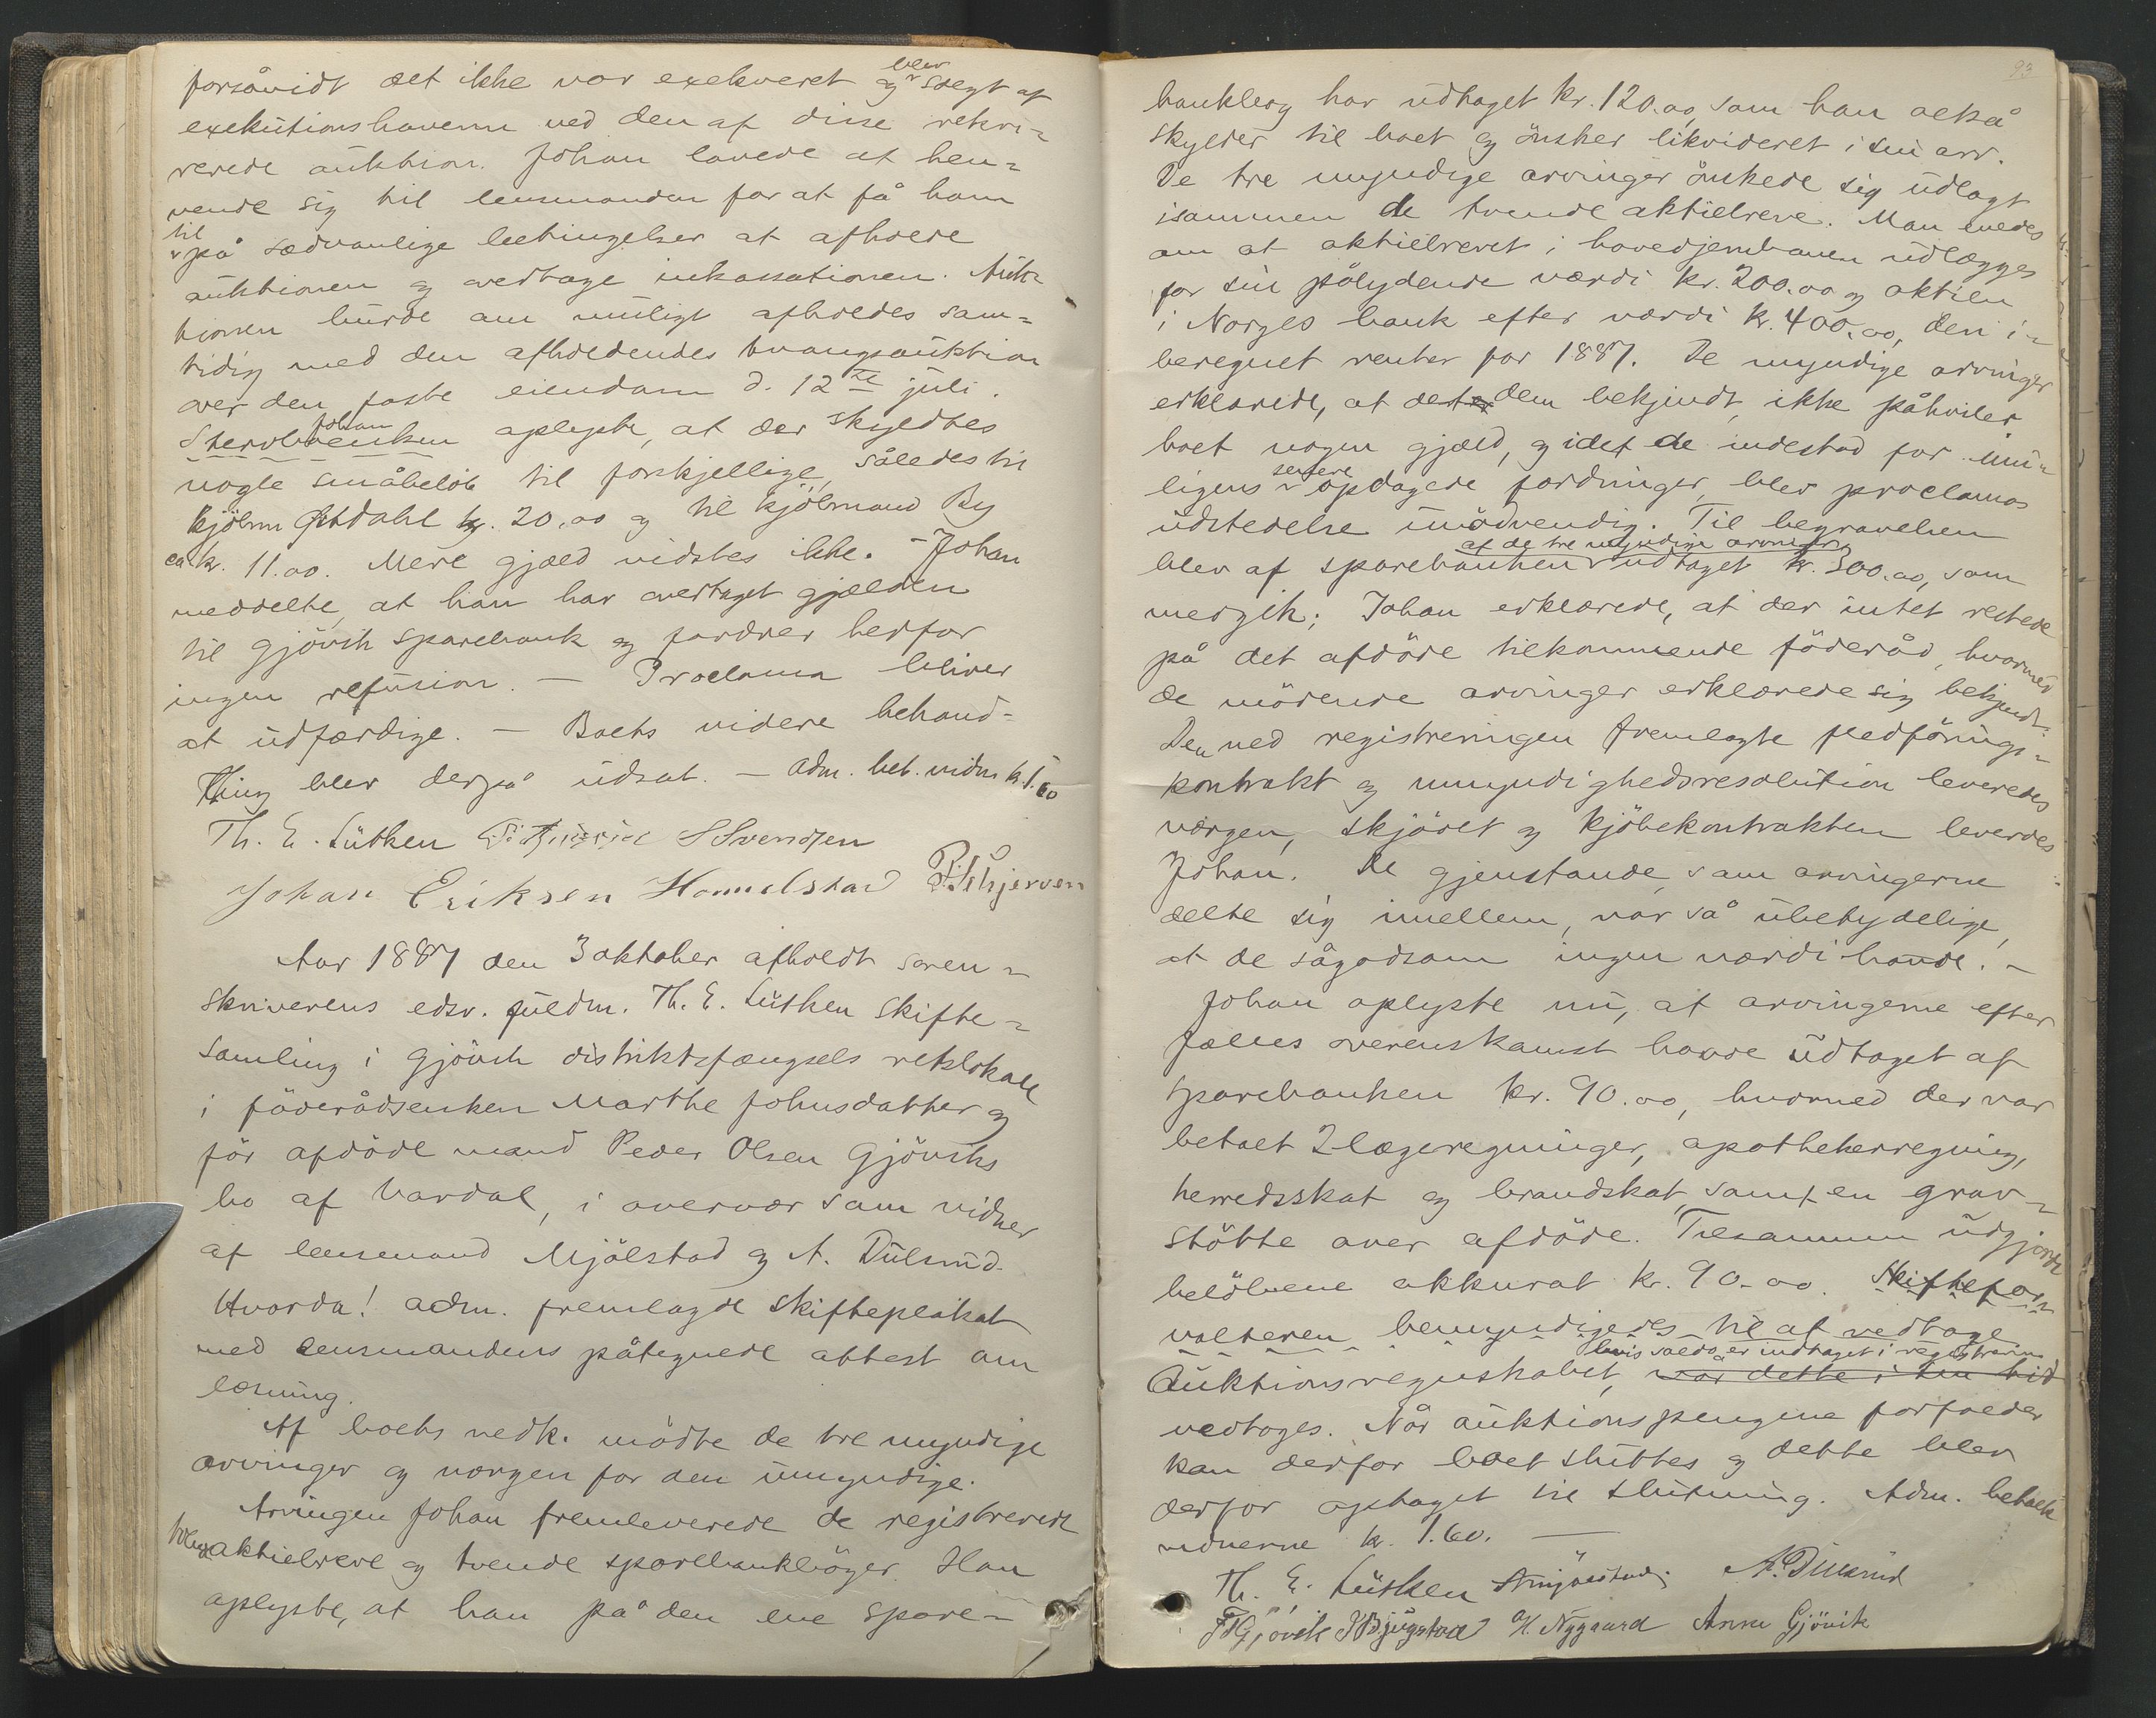 forsåvidt det ikke var exekveret og blev solgt af
exekutionshaverne ved den af disse rekvi-
rerede auktion. Johan lovede at hen-
vende sig til lensmanden for at få ham
til på sædvanlige betingelser at afholde
auktionen og overtage inkassationen. Auk-
tionen burde om muligt afholdes sam-
tidig med den afholdendes tvangsauktion
over den faste eiendom d. 12te juli.
Johan oplyste, at der skyldtes
nogle småbeløb til forskjellige, således til
kjøbm Østdahl kr. 20.00 og til kjøbmand By
ca kr. 11.00. Mere gjæld vidstes ikke. - Johan
meddelte, at han har overtaget gjælden
til Gjøvik sparebank og fordrer herfor
ingen refusion. - Proclama bliver
at udfærdige. - Boets videre behand-
ling blev derpå udsat. - Adm. bet. vidne kr. 1.60
Th. E. Lütken Svendsen
Johan Eriksen Hommelstad P. Skjerven
Aar 1887 den 3 oktober afholdt soren-
skriverens edsv. fuldm. Th. E. Lütken skifte-
samling i Gjøvik distriktsfængsels retslokale
i føderådsenken Marthe Johnsdatter og
før afdøde mand Peder Olsen Gjøviks
bo af Vardal, i overvær som vidner
af lensmand Mjølstad og A. Dulsrud.
Hvorda! Adm. fremlagde skifteplakat
med lensmandens påtegnede attest om
læsning.
Af boets vedk. mødte de tre myndige
arvinger og værgen for den umyndige.
Arvingen Johan fremleverede de registrerede
tvende aktiebreve og tvende sparebankbøger. Han
oplyste, at han på den ene spare-
93
bankbog har udtaget kr. 120.00, som han altså
skylder til boet og ønsker likvideret i sin arv.
De tre myndige arvinger ønskede sig udlagt
isammen de tvende aktiebreve. Man enedes
om at aktiebrevet i hovedjernbanen udlægges
for sin pålydende værdi kr. 200.00 og aktien
i Norges bank efter værdi kr. 400.00, den i-
beregnet renter for 1887. De myndige arvinger
erklærede, at det dem bekjendt, ikke påhviler
boet nogen gjæld, og idet de indestod for mu-
ligens senere opdagede fordringer, blev proclamas
udstedelse unødvendig. Til begravelsen
blev af sparebanken af de tre myndige arvinger udtaget kr. 300.00, som
medgik; Johan erklærede, at der intet restede
på det afdøde tilkommende føderåd, hvormed
de mødende arvinger erklærede sig bekjendt.
Den ved registreringen fremlagte fledførings-
kontrakt og umyndighedsresolution leveredes
værgen, skjødet og kjøbekontrakten leverdes
Johan. De gjenstande, som arvingerne
delte sig imellem, var så ubetydelige,
at de sågodsom ingen værdi havde. -
Johan oplyste nu, at arvingerne efter
fælles overenskomst havde udtaget af
sparebanken kr. 90.00, hvormed der var
betalt 2 lægeregninger, apothekerregning,
herredsskat og brandskat, samt en grav-
støtte over afdøde. Tilsammen udgjorde
beløbene akkurat kr. 90.00. Skiftefor-
valteren bemyndigedes til at vedtage
Auktionsregnskabet, hvis saldo er indtaget i registrering var dette i sin tid
vedtages. Når auktionspengene forfalder
kan derfor boet sluttes og dette blev
derfor optaget til slutning. Adm. betalte
vidnerne kr. 1.60.
Th. E. Lütken A Mjølstad. A. Dulsrud
Gjøvik H. Nygaard Anne Gjövik